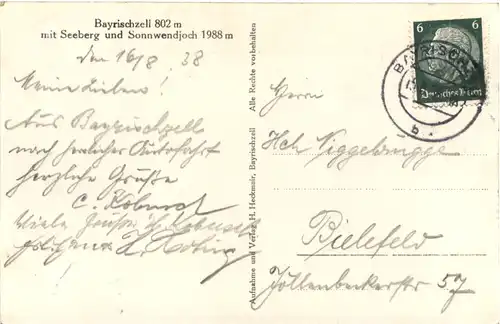 Bayrischzell 802 m
mit Seeberg und Sonnwendjoch 1988 m
den 16/8. 38
Meine Lieben!
Aus Bayrischzell
nach herrlicher Autofahrt
herzliche Grüße
Viele Grüße
Alle Rechte vorbehalten
Aufnahme und Verlag H. Heckmair, Bayrischzell
6 6
Deutsches Reich
BAYRISCHZ
b
Herrn
Hch Viggelbrugge
Bielefeld
Jöllenbeckerstr 57